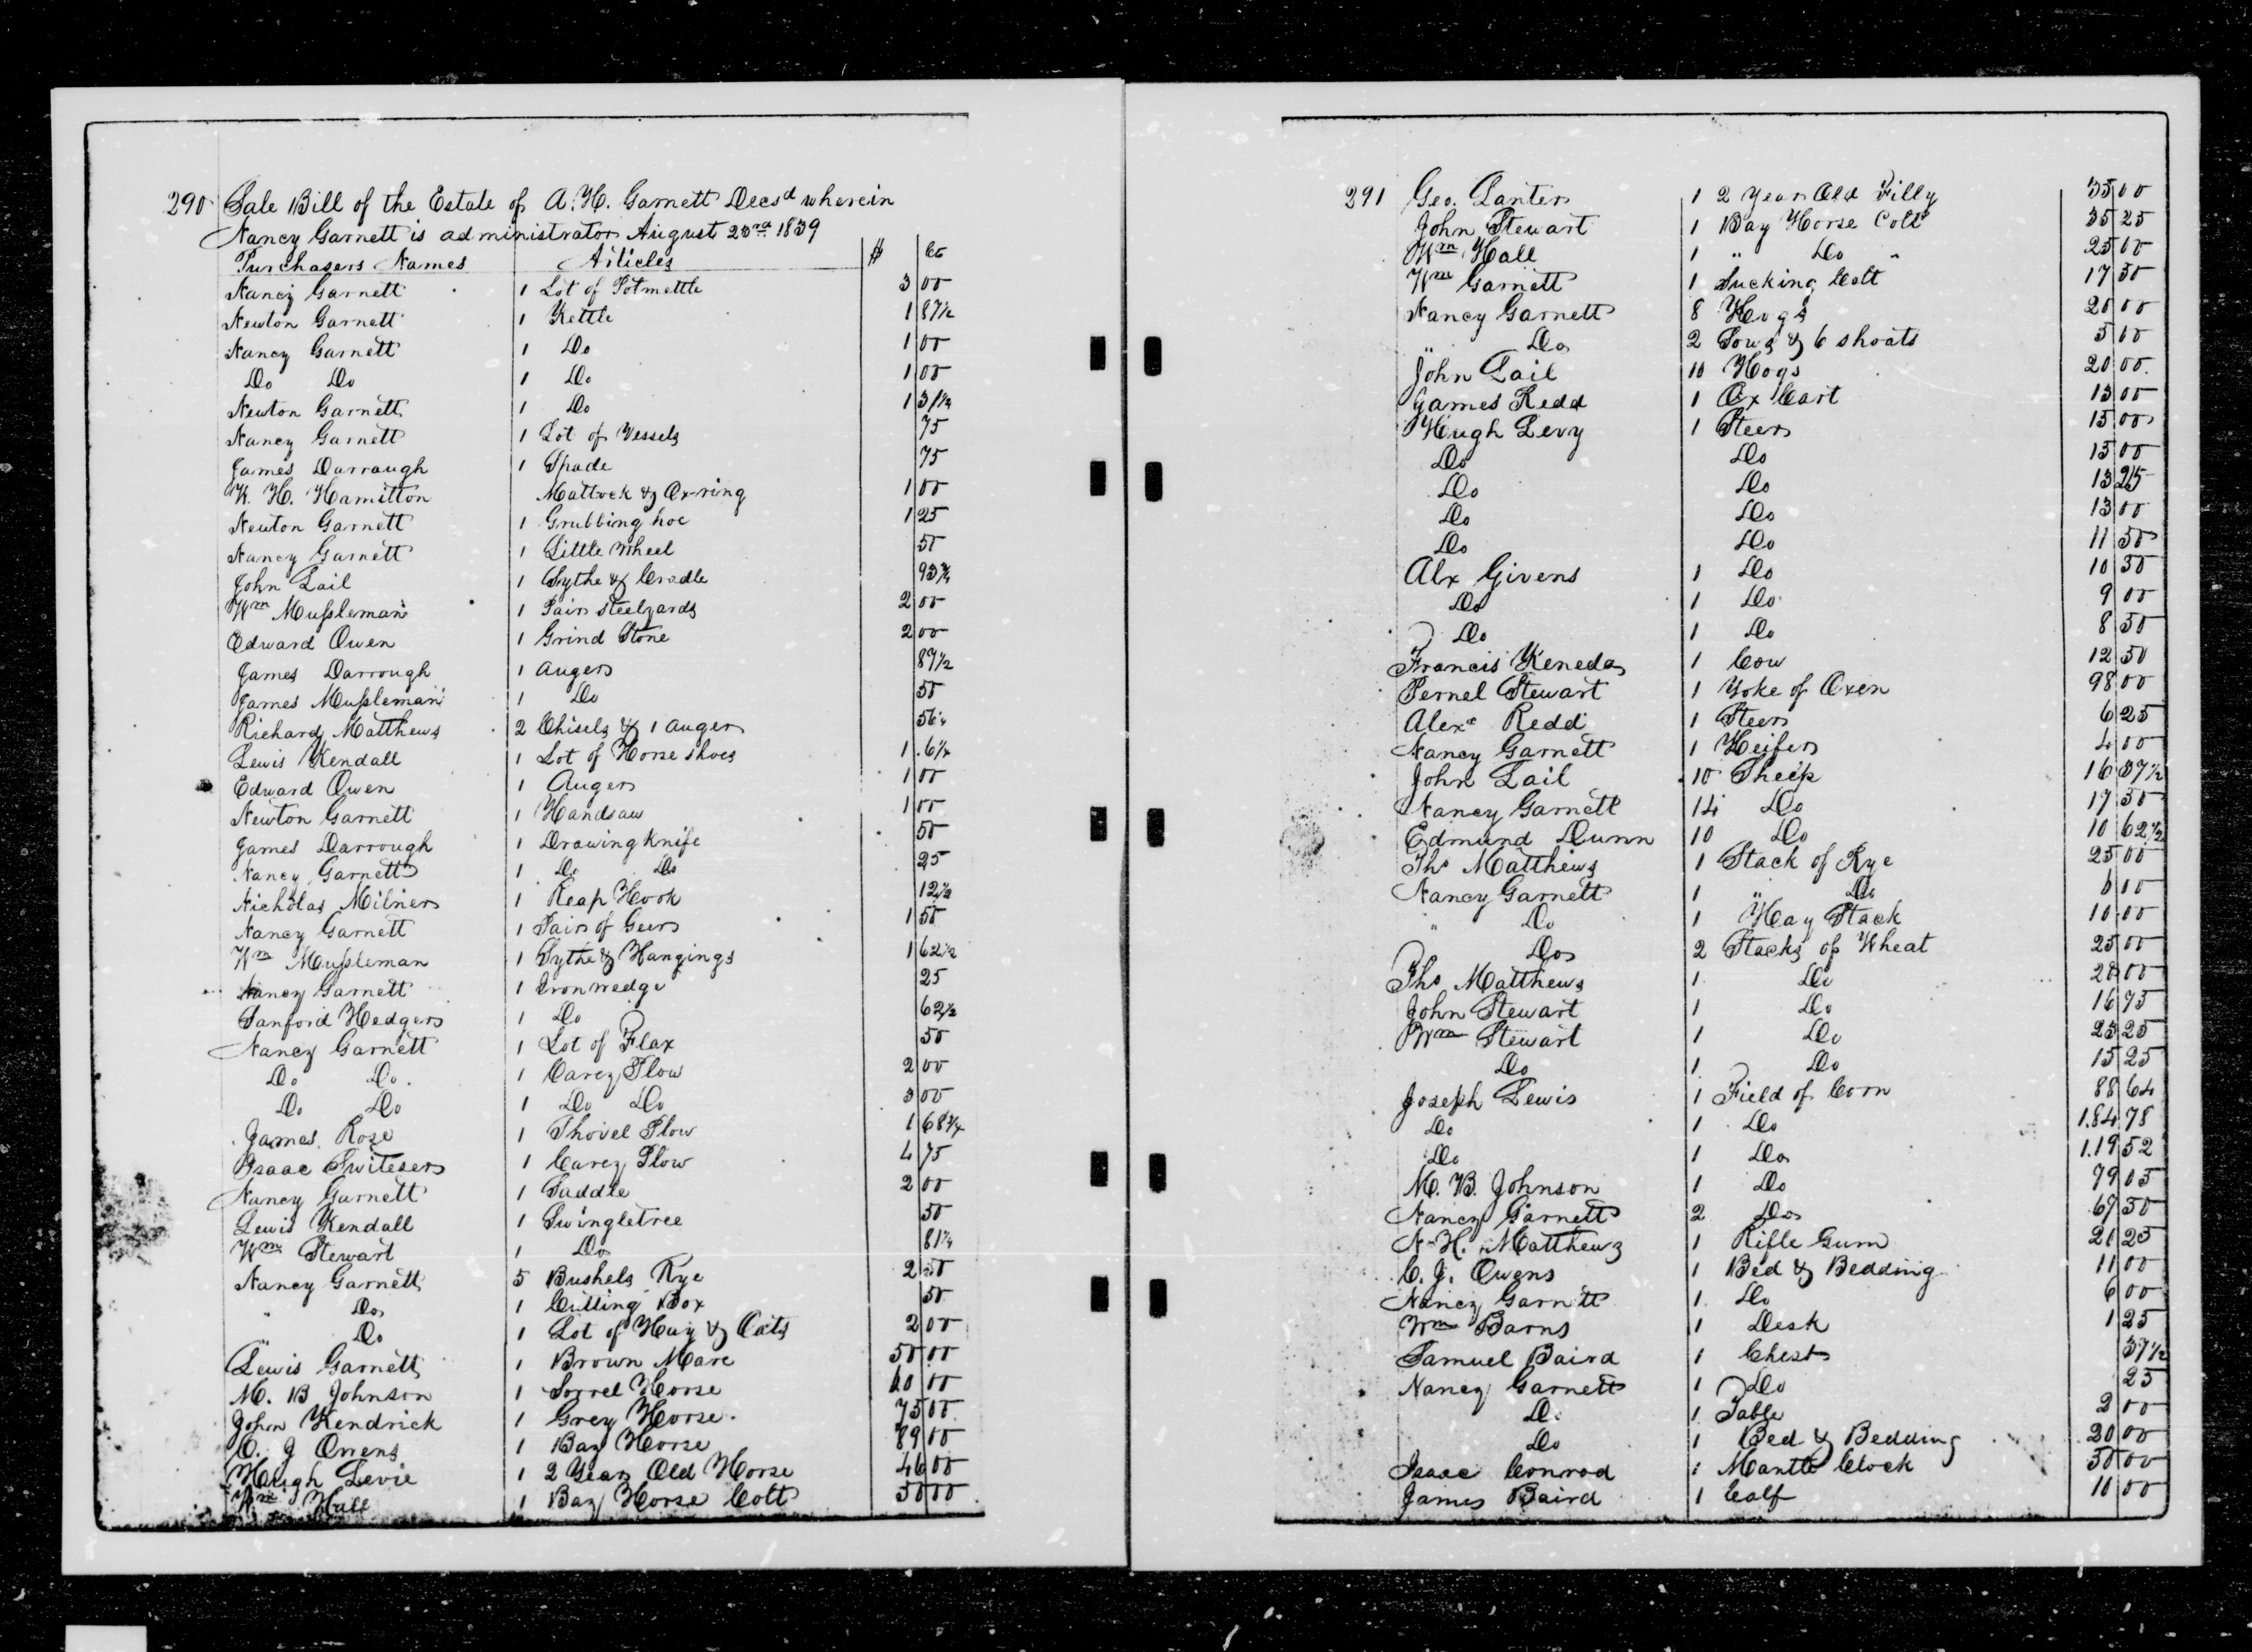 290 Sale Bill of the Estate of A. H. Garnett Decsd wherein
Nancy Garnett is administrator August 23rd 1839
Purchasers Names Articles $ Cts
Nancy Garnett 1 Lot of Potmettle 3 00
Newton Garnett 1 Kettle 1 87½
Nancy Garnett 1 Do 1 00
Do Do 1 Do 1 00
Newton Garnett 1 Do 1 31¼
Nancy Garnett 1 Lot of Vessels 75
James Darraugh 1 Spade 75
W. H. Hamilton Mattock & Ox-ring 1 00
Newton Garnett 1 Grubbing hoe 1 25
Nancy Garnett 1 Little Wheel 50
John Lail 1 Sythe & Cradle 93¾
Wm Mussleman 1 Pair steelyards 2 00
Edward Owen 1 Grind Stone 2 00
James Darrough 1 auger 87½
James Mussleman 1 Do 50
Richard Matthews 2 Chisels & 1 auger 56¼
Lewis Kendall 1 Lot of Horse shoes 1 .6¼
Edward Owen 1 Auger 1 00
Newton Garnett 1 Handsaw 1 00
James Darrough 1 Drawing knife 50
Nancy Garnett 1 Do Do 25
Nicholas Milner 1 Reap Hook 12½
Nancy Garnett 1 Pair of Geers 1 50
Wm Mussleman 1 Sythe & Hangings 1 62½
Nancy Garnett 1 Iron wedge 25
Sanford Hedger 1 Do 62½
Nancy Garnett 1 Lot of Flax 50
Do Do. 1 Carey Plow 2 00
Do Do 1 Do Do 3 00
James Rose 1 Shovel Plow 1 68¾
Isaac Switeser 1 Carey Plow 4 75
Nancy Garnett 1 Saddle 2 00
Lewis Kendall 1 Swingletree 50
Wm Stewart 1 Do 81¼
Nancy Garnett 5 Bushels Rye 2 50
" Do 1 Cutting Box 50
" Do 1 Lot of Hay & Oats 2 00
Lewis Garnett 1 Brown Mare 50 00
M. B Johnson 1 Sorrel Horse 60 00
John Kendrick 1 Grey Horse. 75 00
C. J Owens 1 Bay Horse 89 00
Hugh Levie 1 2 Year Old Horse 46 00
Wm Hall 1 Bay Horse Colt 50 00
291 Geo. Lanter 1 2 Year Old Filly 35 00
John Stewart 1 Bay Horse Colt 35 25
Wm Hall 1 " Do " 25 00
Wm Garnett 1 Sucking Colt 17 50
Nancy Garnett 8 Hogs 20 00
" Do 2 Sows & 6 shoats 5 00
John Lail 10 Hogs 20 00
James Redd 1 Ox Cart 13 00
Hugh Levy 1 Steer 15 00
Do Do 15 00
Do Do 13 25
Do Do 13 00
Do Do 11 50
Alx Givens 1 Do 10 50
Do 1 Do 9 00
Do 1 Do 8 50
Francis Keneda 1 Cow 12 50
Pernel Stewart 1 Yoke of Oxen 98 00
Alexr Redd 1 Steer 6 25
Nancy Garnett 1 Heifer 4 00
John Lail 10 Sheep 16 37½
Nancy Garnett 14 Do 17 50
Edmund Dunn 10 Do 10 62½
Ths Matthews 1 Stack of Rye 25 00
Nancy Garnett 1 " Do 6 00
" Do 1 Hay Stack 10 00
Do 2 Stacks of Wheat 25 00
Ths Matthews 1 Do 20 00
John Stewart 1 Do 16 75
Wm Stewart 1 Do 23 25
Do 1 Do 15 25
Joseph Lewis 1 Field of Corn 88 64
Do 1 Do 1.84 78
Do 1 Do 1.19 52
M. B. Johnson 1 Do 79 05
Nancy Garnett 2 Do 67 50
N. H. Matthews 1 Rifle Gum 21 25
C. J. Owens 1 Bed & Bedding 11 00
Nancy Garnett 1 Do 6 00
Wm Barns 1 Desk 1 25
Samuel Baird 1 Chest 37½
Nancy Garnett 1 Do 25
Do 1 Table 2 00
Do 1 Bed & Bedding 20 00
Isaac Conrod 1 Mantle Clock 30 00
James Baird 1 Calf 10 00